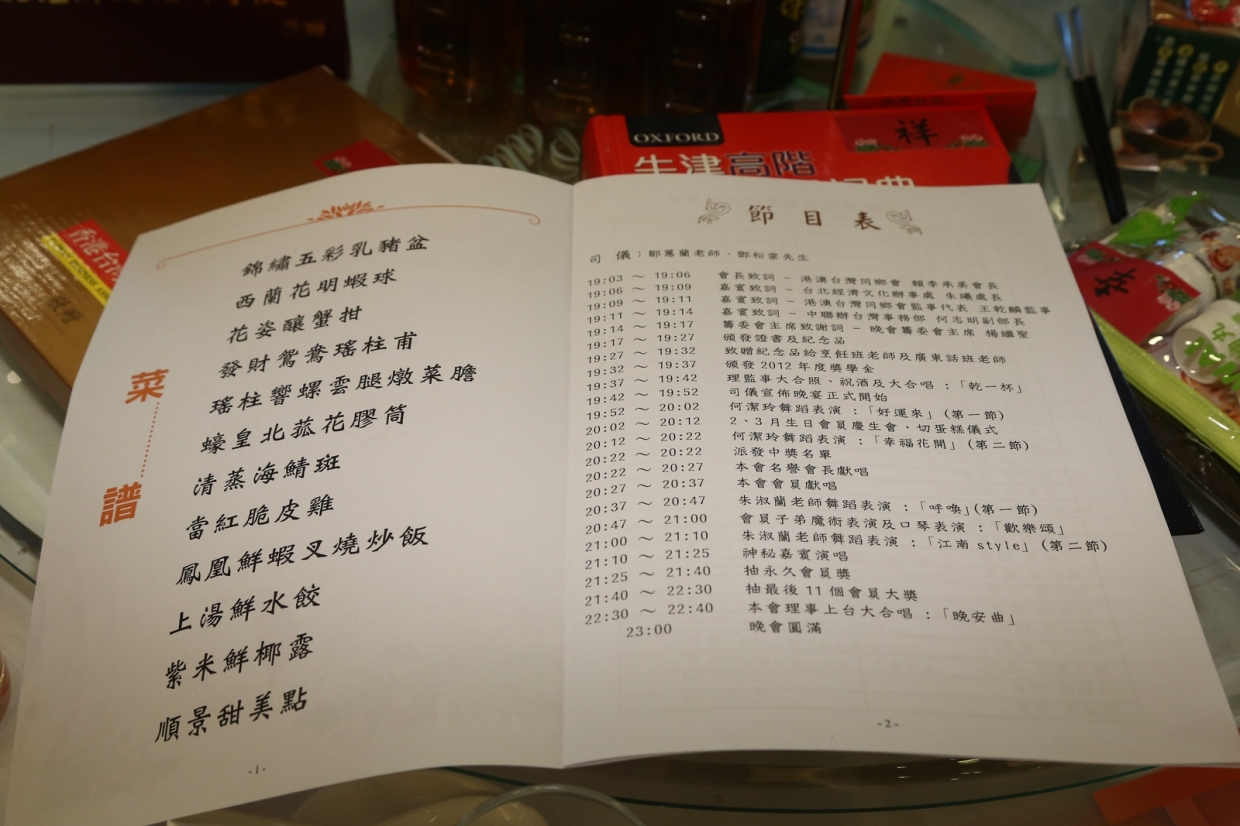 OXFORD
牛津高階
祥
香港台灣
菜譜
錦繡五彩乳豬盆
西蘭花明蝦球
花姿釀蟹拑
發財鴛鴦瑤柱甫
瑤柱響螺雲腿燉菜膽
蠔皇北菰花膠筒
清蒸海鯖斑
當紅脆皮雞
鳳凰鮮蝦叉燒炒飯
上湯鮮水餃
紫米鮮椰露
順景甜美點
-1-
節目表
司 儀：鄒蕙蘭老師、鄧松棠先生
19:03 ～ 19:06 會長致詞 – 港澳台灣同鄉會 賴李承美會長
19:06 ～ 19:09 嘉賓致詞 – 台北經濟文化辦事處 朱曦處長
19:09 ～ 19:11 嘉賓致詞 – 港澳台灣同鄉會監事代表 王乾麟監事
19:11 ～ 19:14 嘉賓致詞 – 中聯辦台灣事務部 何志明副部長
19:14 ～ 19:17 籌委會主席致謝詞 – 晚會籌委會主席 楊繼聖
19:17 ～ 19:27 頒發證書及紀念品
19:27 ～ 19:32 致贈紀念品給烹飪班老師及廣東話班老師
19:32 ～ 19:37 頒發2012年度獎學金
19:37 ～ 19:42 理監事大合照、祝酒及大合唱：「乾一杯」
19:42 ～ 19:52 司儀宣佈晚宴正式開始
19:52 ～ 20:02 何潔玲舞蹈表演 ：「好運來」(第一節)
20:02 ～ 20:12 2、3月生日會員慶生會，切蛋糕儀式
20:12 ～ 20:22 何潔玲舞蹈表演 ：「幸福花開」(第二節)
20:22 ～ 20:22 派發中獎名單
20:22 ～ 20:27 本會名譽會長獻唱
20:27 ～ 20:37 本會會員獻唱
20:37 ～ 20:47 朱淑蘭老師舞蹈表演 ：「呼喚」(第一節)
20:47 ～ 21:00 會員子弟魔術表演及口琴表演 ：「歡樂頌」
21:00 ～ 21:10 朱淑蘭老師舞蹈表演 ：「江南 style」(第二節)
21:10 ～ 21:25 神秘嘉賓演唱
21:25 ～ 21:40 抽永久會員獎
21:40 ～ 22:30 抽最後11個會員大獎
22:30 ～ 22:40 本會理事上台大合唱 ：「晚安曲」
23:00 晚會圓滿
-2-